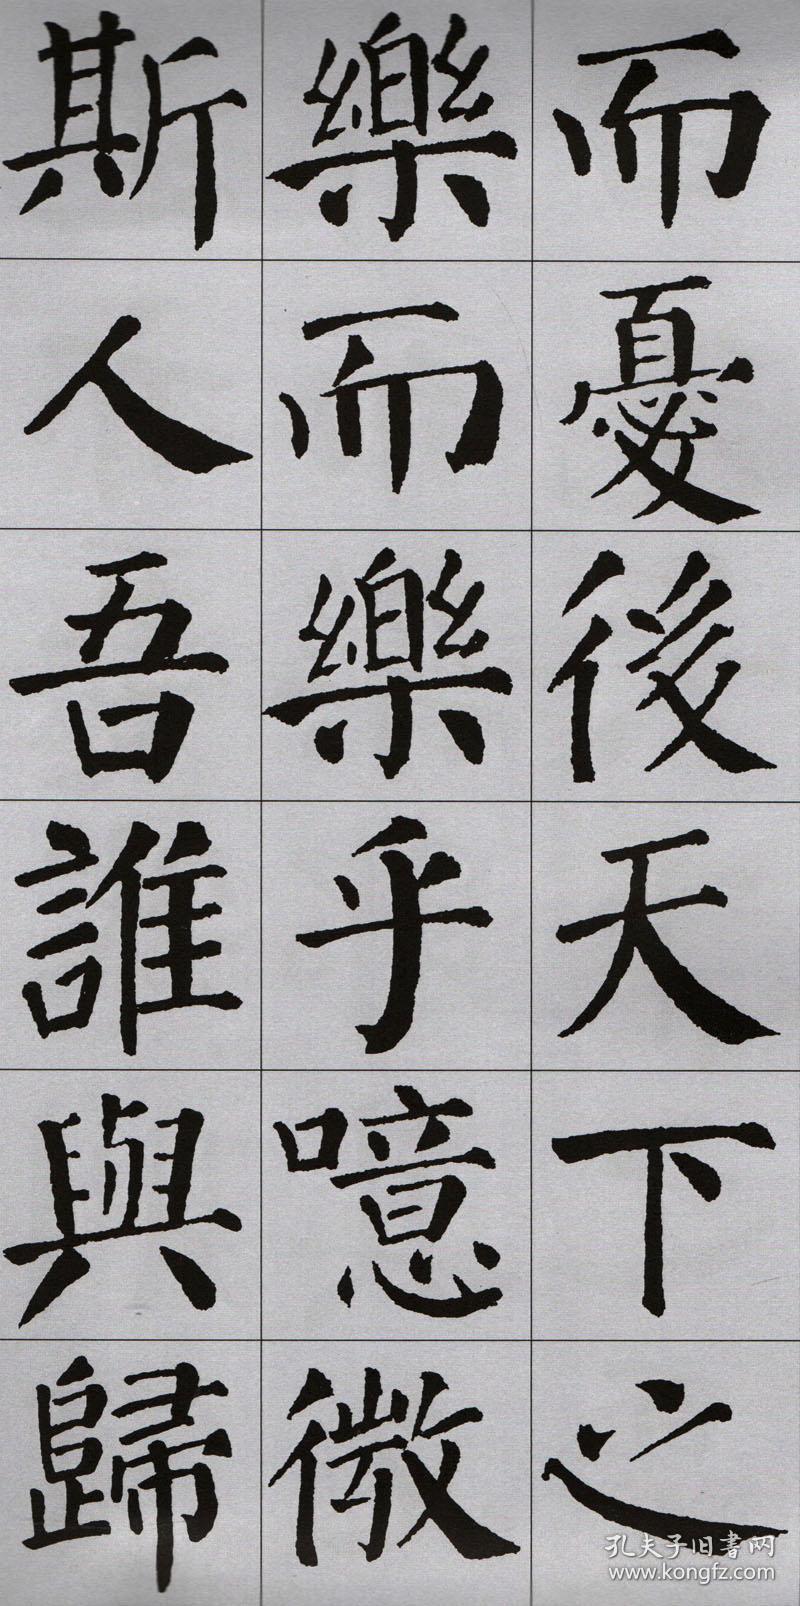 而憂後天下之
樂而樂乎噫微
斯人吾誰與歸
孔夫子旧書网
www.kongfz.com